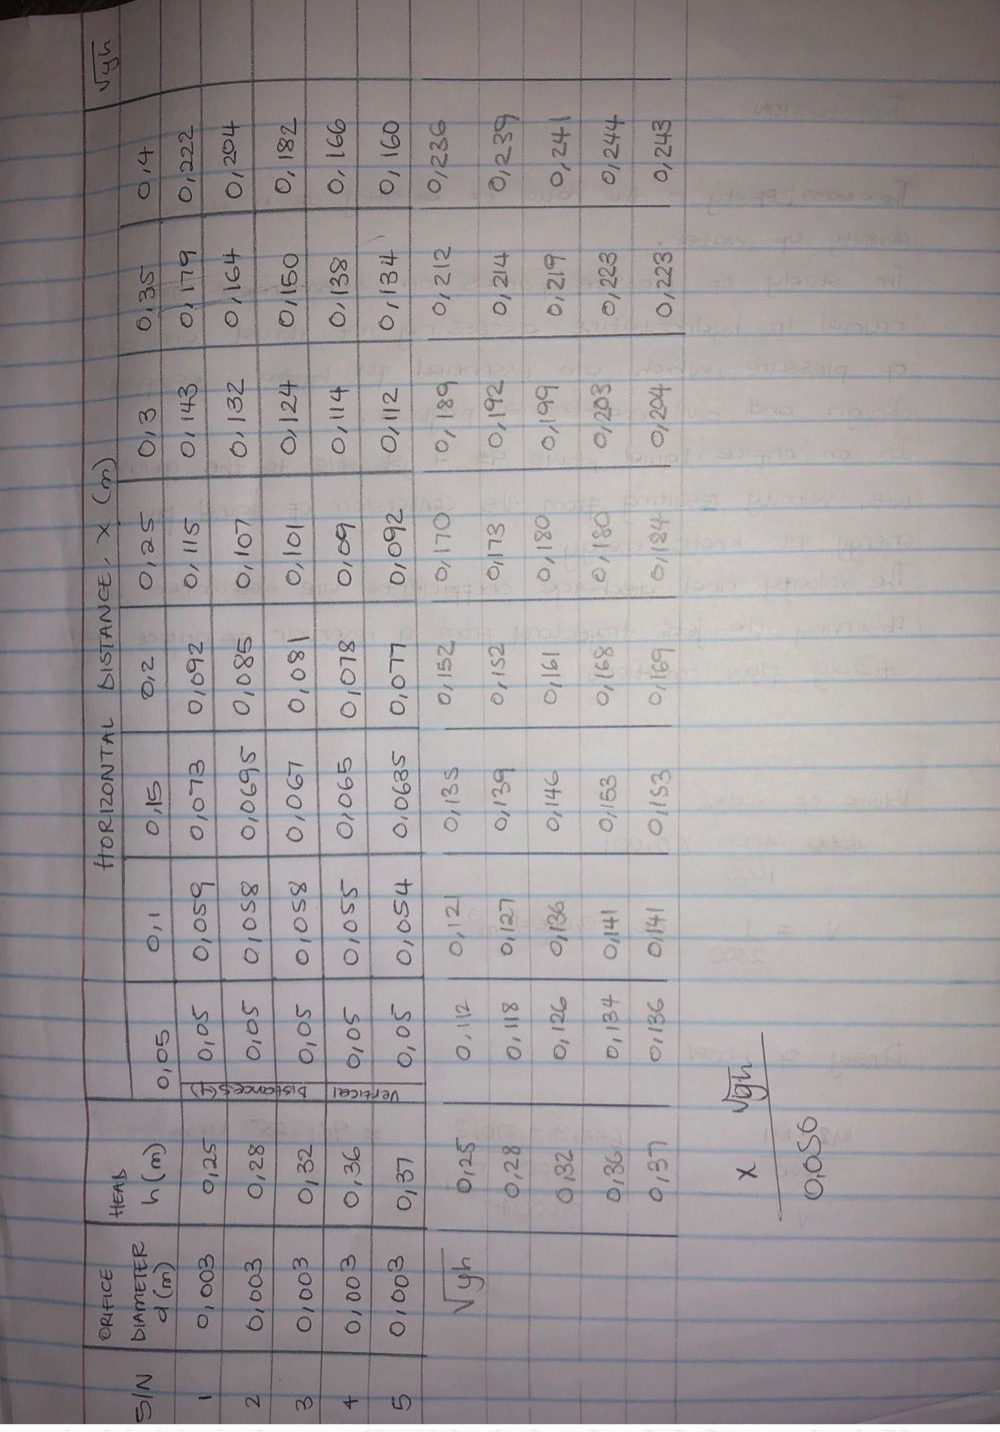 HORIZONTAL DISTANCE, X (m) √yh
S/N ORIFICE DIAMETER d(m) HEAD h(m) 0,05 0,1 0,15 0,2 0,25 0,3 0,35 0,4
1 0,003 0,25 0,05 0,059 0,073 0,092 0,115 0,143 0,179 0,222
2 0,003 0,28 0,05 0,058 0,0695 0,085 0,107 0,132 0,164 0,204
3 0,003 0,32 0,05 0,058 0,067 0,081 0,101 0,124 0,150 0,182
4 0,003 0,36 0,05 0,055 0,065 0,078 0,09 0,114 0,138 0,166
5 0,003 0,37 0,05 0,054 0,0635 0,077 0,092 0,112 0,134 0,160
Vertical Distances (y)
√yh 0,25 0,112 0,121 0,135 0,152 0,170 0,189 0,212 0,236
0,28 0,118 0,127 0,139 0,152 0,173 0,192 0,214 0,239
0,32 0,126 0,136 0,146 0,161 0,180 0,199 0,219 0,241
0,36 0,134 0,141 0,153 0,168 0,180 0,203 0,223 0,244
0,37 0,136 0,141 0,153 0,169 0,184 0,204 0,223 0,243
X √yh
0,056